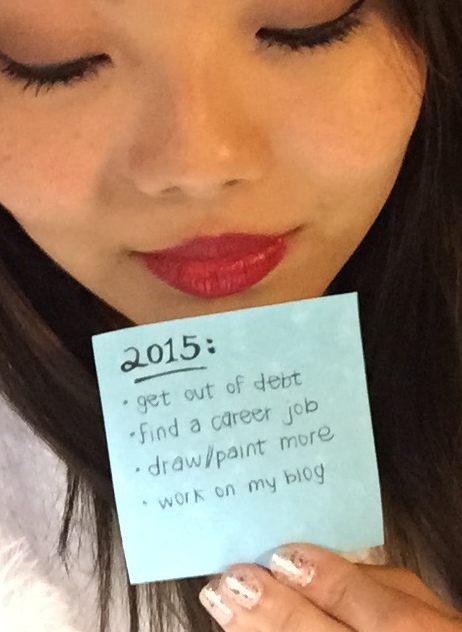 2015:
• get out of debt
• find a career job
• draw//paint more
• work on my blog